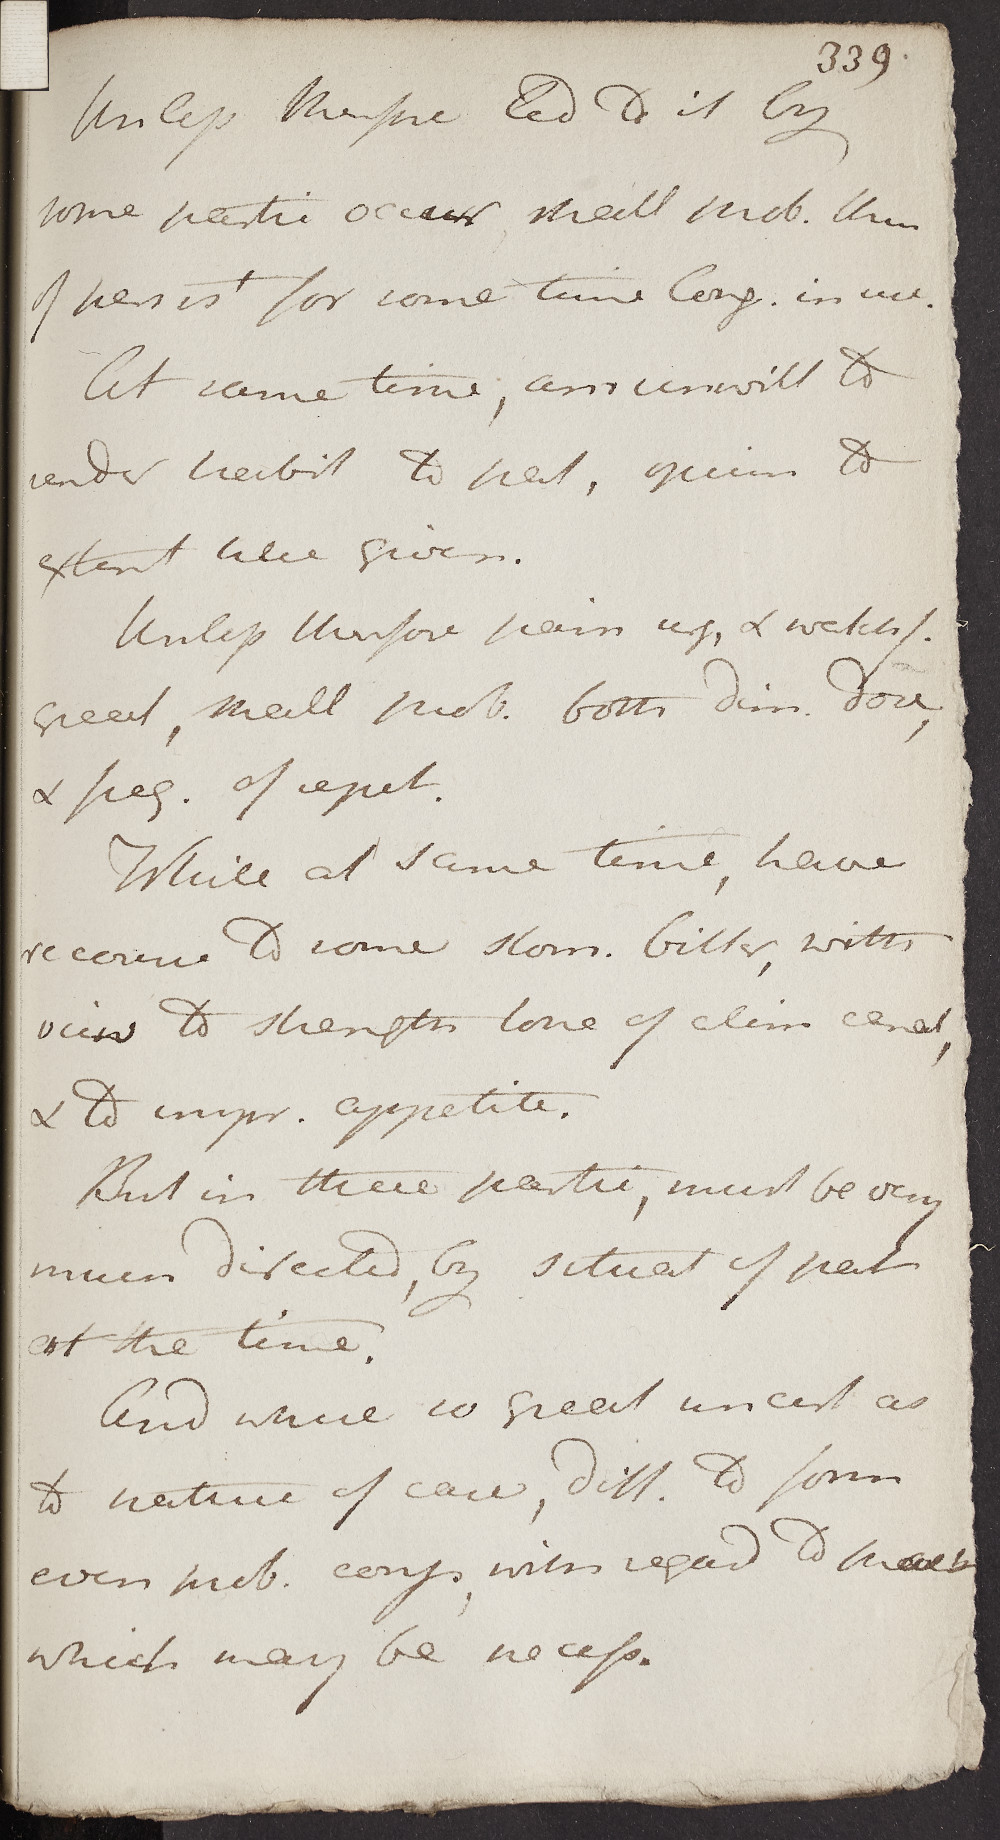 339.
Unless therefore led to it by
some partic occurr shall prob. thin
of persist for some time long. in use.
At same time, am unwill to
render habit to pat, opium to
extent here given.
Unless therefore pain urg, & wakef.
great, shall prob. both dim. dose,
& freq. of repet.
While at same time, have
recourse to some stom. bitter, with
view to strength tone of alim canal,
& to impr. appetite.
But in these partic, must be very
much directed, by situat of pat
at the time.
And where so great uncert as
to nature of case, diff. to form
even prob. conj, with regard to meas
which may be necess.